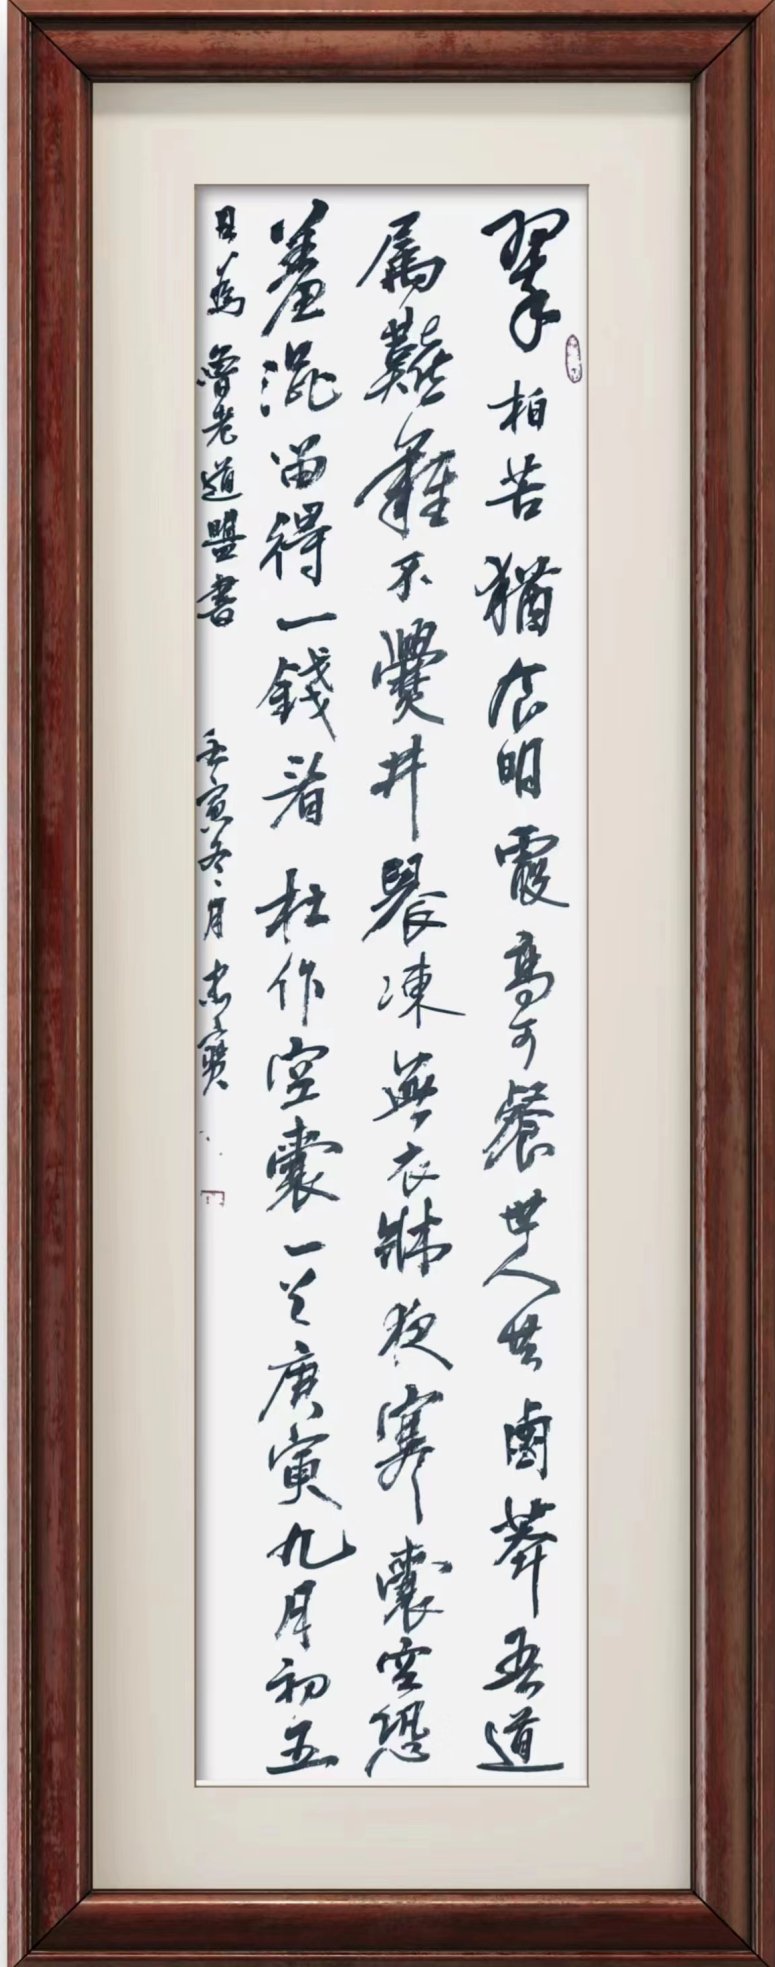 翠柏苦猶食明霞高可餐世人共鹵莽吾道
属艱難不爨井晨凍無衣牀夜寒囊空恐
羞澀留得一錢看杜作空囊一首庚寅九月初五
日為魯老道盟書 壬寅冬月